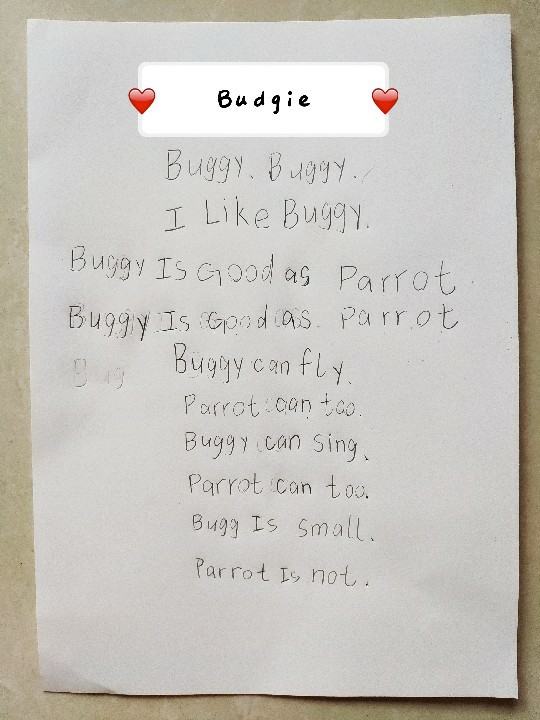 Budgie
Buggy. Buggy.
I Like Buggy.
Buggy Is Good as Parrot
Buggy Is Good as Parrot
Buggy can fly.
Parrot can too.
Buggy can sing.
Parrot can too.
Bugg Is small.
Parrot Is not.